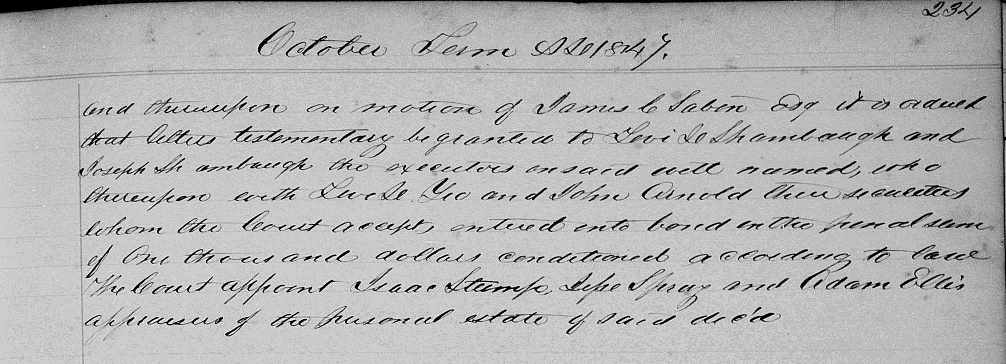 234
October Term AD 1847.
and thereupon on motion of James C Sabin Esq it is ordered
that letters testamentary be granted to Levi D Shambaugh and
Joseph Shambaugh the executors in said will named, who
thereupon with and John Arnold their securities
whom the Court accept, entered into bond in the penal sum
of One thousand dollars conditioned according to law
The Court appoint Isaac Stump, Jesse Spray and Adam Ellis
appraisers of the personal estate of said dec'd